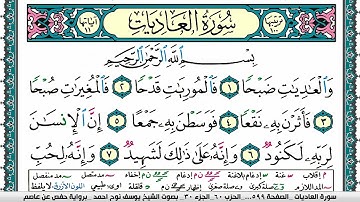 سُورَةُ الْعَادِيَاتِ
بِسْمِ اللَّهِ الرَّحْمَٰنِ الرَّحِيمِ
وَالْعَٰدِيَٰتِ ضَبْحًا ١ فَالْمُورِيَٰتِ قَدْحًا ٢ فَالْمُغِيرَٰتِ صُبْحًا
٣ فَأَثَرْنَ بِهِ نَقْعًا ٤ فَوَسَطْنَ بِهِ جَمْعًا ٥ إِنَّ الْإِنسَٰنَ
لِرَبِّهِ لَكَنُودٌ ٦ وَإِنَّهُ عَلَىٰ ذَٰلِكَ لَشَهِيدٌ ٧ وَإِنَّهُ لِحُبِّ
سورة العاديات . الصفحة ٥٩٩ . الحزب ٦٠ . الجزء ٣٠ . بصوت الشيخ يوسف نوح أحمد . برواية حفص عن عاصم